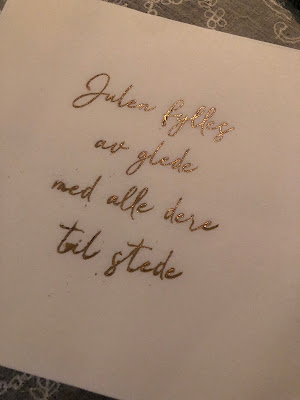 Julen fylles
av glede
med alle dere
til stede